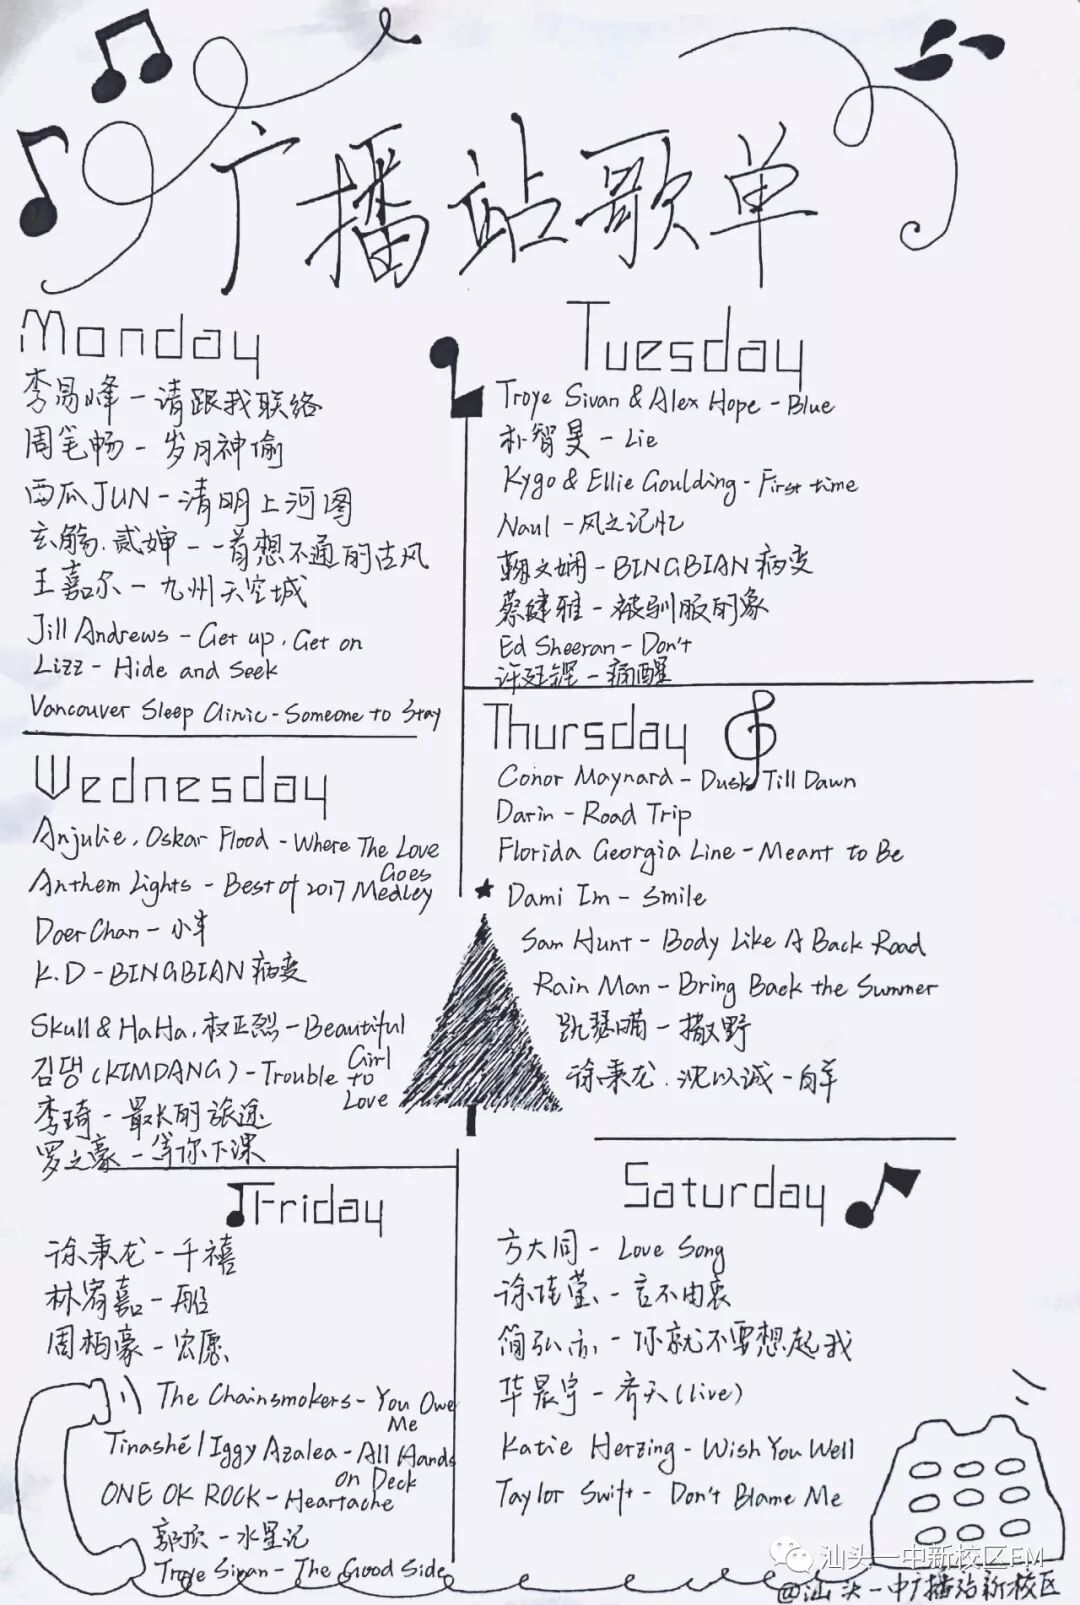 广播站歌单
Monday
李易峰-请跟我联络
周笔畅-岁月神偷
西瓜JUN-清明上河图
玄觞.贰婶-一首想不通的古风
王嘉尔-九州天空城
Jill Andrews-Get up, Get on
Lizz-Hide and Seek
Vancouver Sleep Clinic-Someone to Stay
Tuesday
Troye Sivan & Alex Hope-Blue
朴智旻-Lie
Kygo & Ellie Goulding-First time
Naul-风之记忆
鞠文娴-BINGBIAN病变
蔡健雅-被驯服的象
Ed Sheeran-Don't
许廷铿-痛醒
Wednesday
Anjulie, Oskar Flood-Where The Love
Goes
Anthem Lights-Best of 2017 Medley
DoerChan-小半
K.D-BINGBIAN病变
Skull & HaHa,权正烈-Beautiful
Girl
김댕(KIMDANG)-Trouble to
Love
李琦-最长的旅途
罗之豪-等你下课
Thursday
Conor Maynard-Dusk Till Dawn
Darin-Road Trip
Florida Georgia Line-Meant to Be
Dami Im-Smile
Sam Hunt-Body Like A Back Road
Rain Man-Bring Back the Summer
凯瑟喵-撒野
徐秉龙.沈以诚-白羊
Friday
徐秉龙-千禧
林宥嘉-船
周柏豪-宏愿
The Chainsmokers-You Owe
Me
Tinashé/Iggy Azalea-All Hands
on Deck
ONE OK ROCK-Heartache
郭顶-水星记
Troye Sivan-The Good Side
Saturday
方大同-Love Song
徐佳莹-言不由衷
简弘亦-你就不要想起我
华晨宇-齐天(live)
Katie Herzing-Wish You Well
Taylor Swift-Don't Blame Me
汕头一中新校区FM
@汕头一中广播站新校区